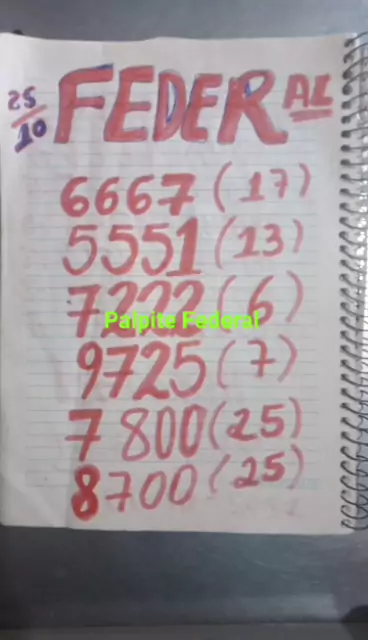 25/10
FEDERAL
6667 (17)
5551 (13)
7222 (6)
Palpite Federal
9725 (7)
7800 (25)
8700 (25)